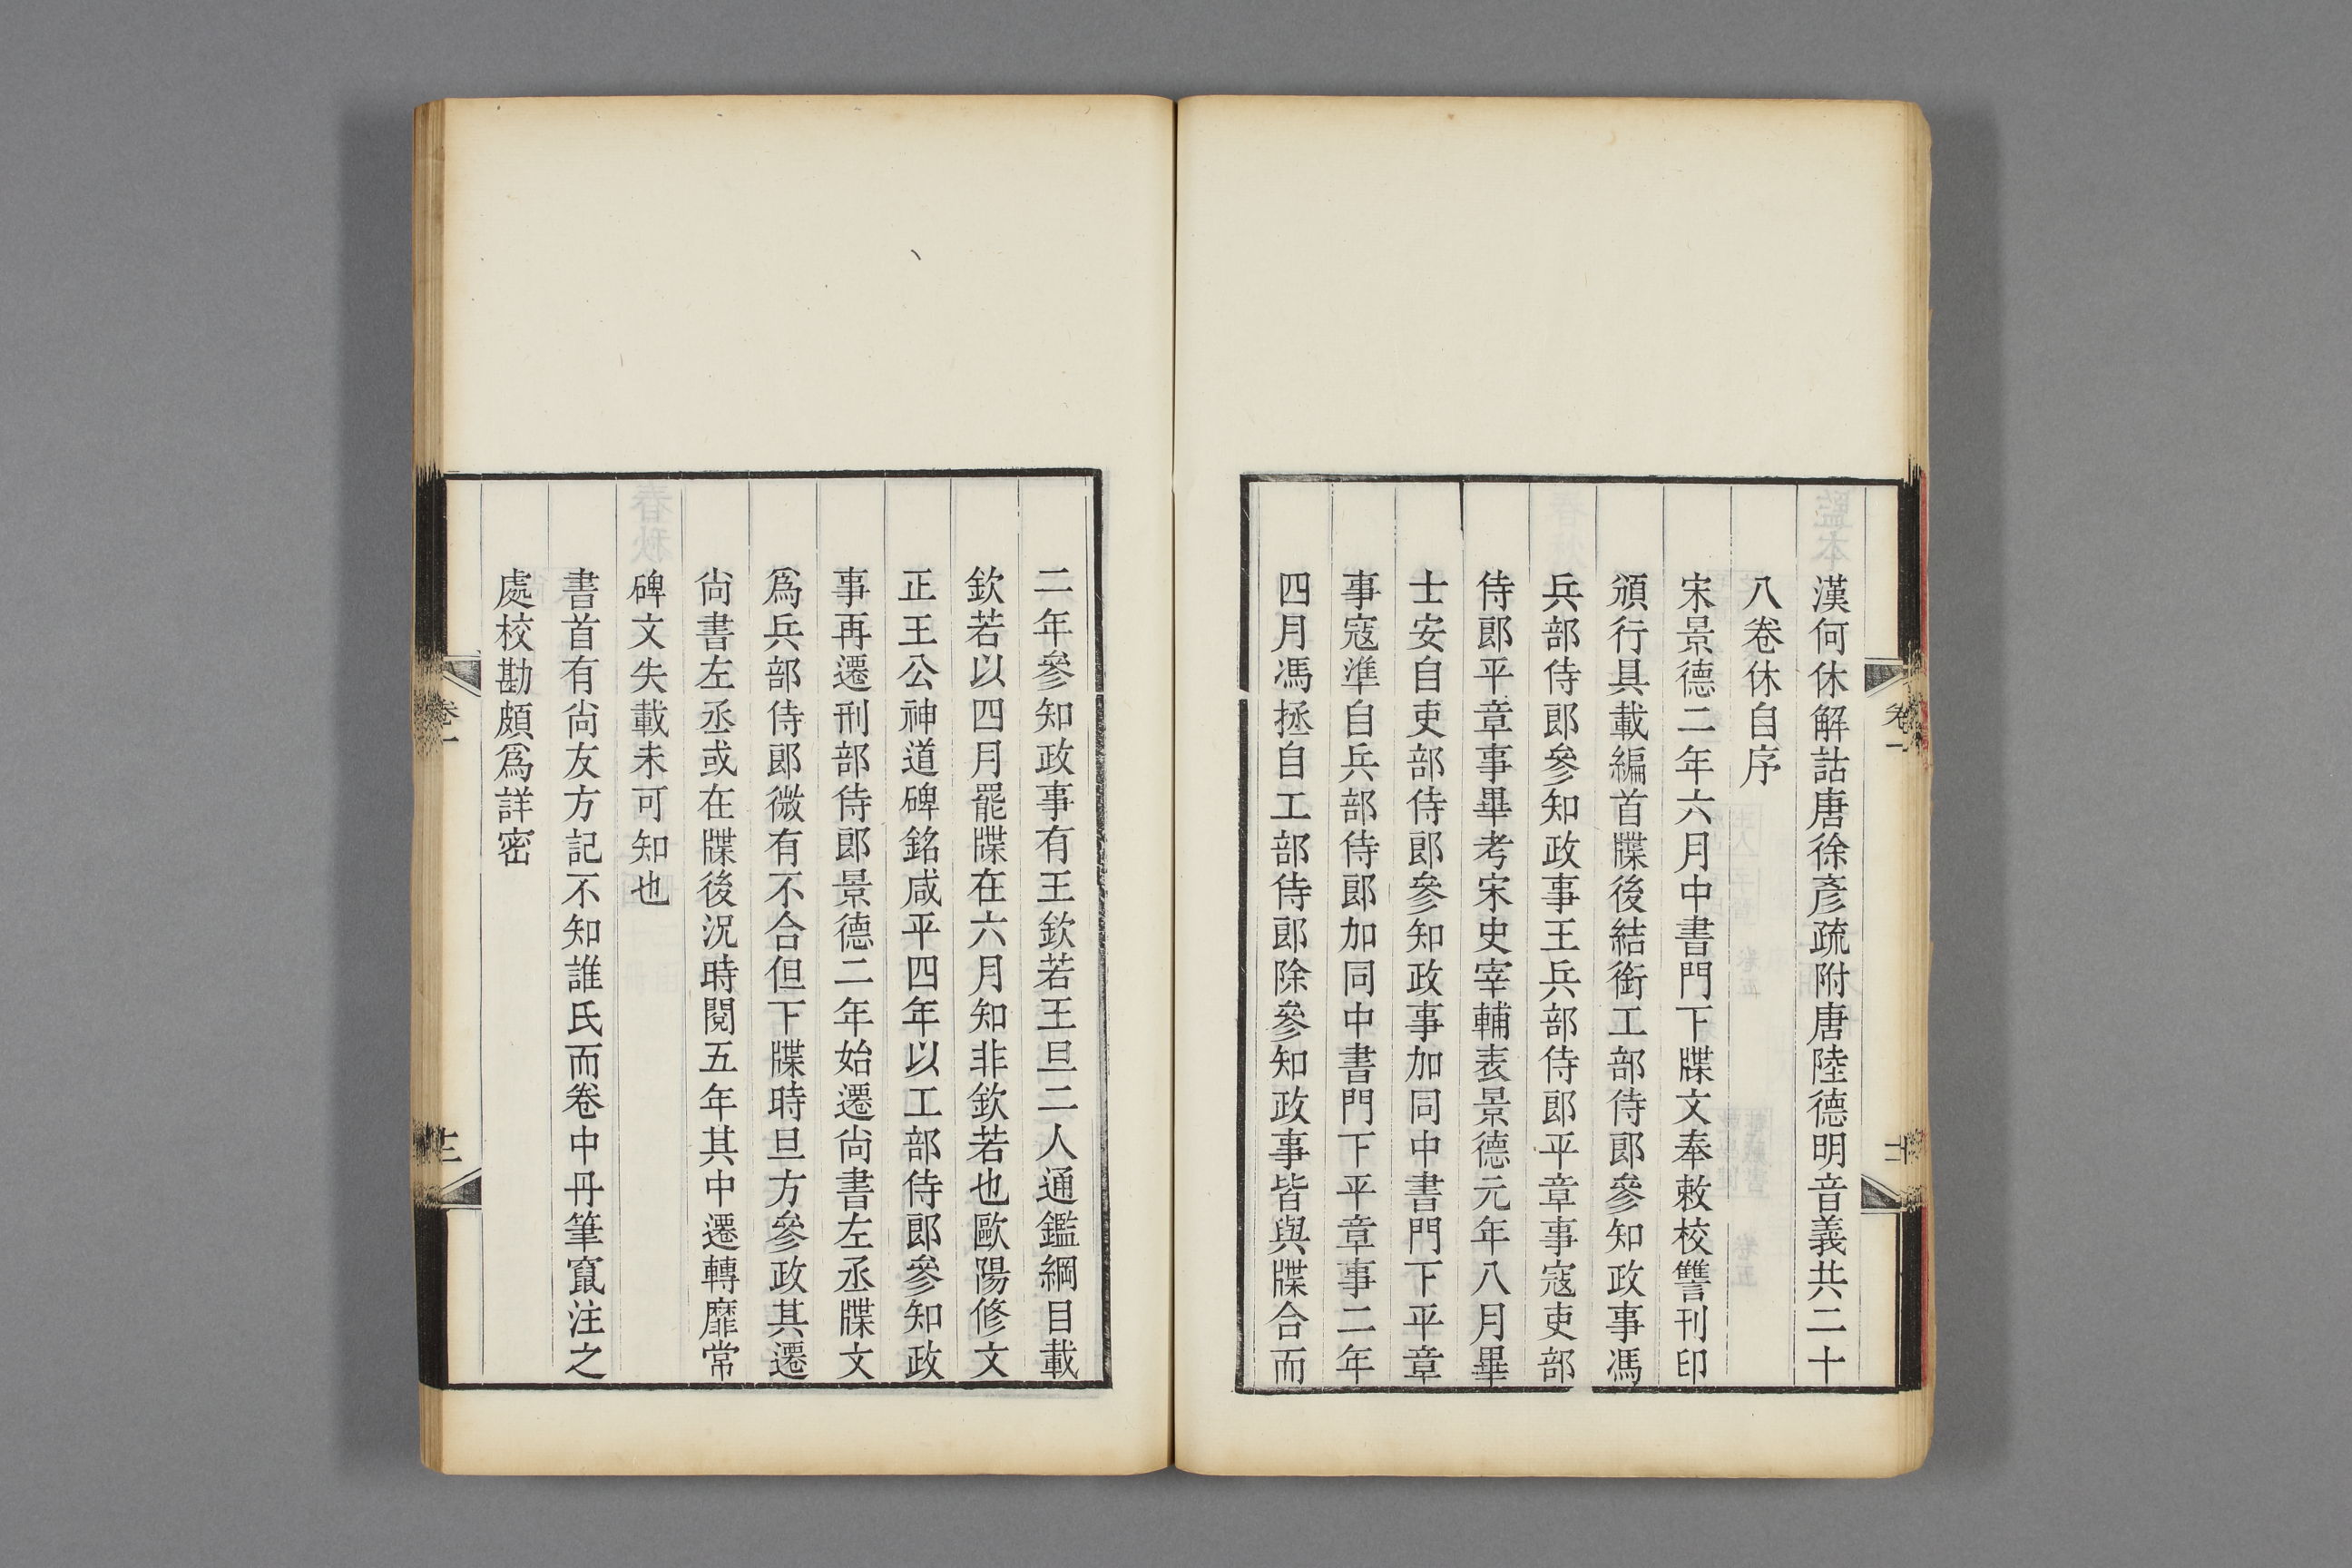 漢何休解詁唐徐彥疏附唐陸德明音義共二十
八卷休自序
宋景德二年六月中書門下牒文奉敕校讐刊印
頒行具載編首牒後結銜工部侍郎參知政事馮
兵部侍郎參知政事王兵部侍郎平章事寇吏部
侍郎平章事畢考宋史宰輔表景德元年八月畢
士安自吏部侍郎參知政事加同中書門下平章
事寇準自兵部侍郎加同中書門下平章事二年
四月馮拯自工部侍郎除參知政事皆與牒合而
二年參知政事有王欽若王旦二人通鑑綱目載
欽若以四月罷牒在六月知非欽若也歐陽修文
正王公神道碑銘咸平四年以工部侍郎參知政
事再遷刑部侍郎景德二年始遷尙書左丞牒文
爲兵部侍郎微有不合但下牒時旦方參政其遷
尙書左丞或在牒後況時閱五年其中遷轉靡常
碑文失載未可知也
書首有尙友方記不知誰氏而卷中丹筆竄注之
處校勘頗爲詳密
卷一